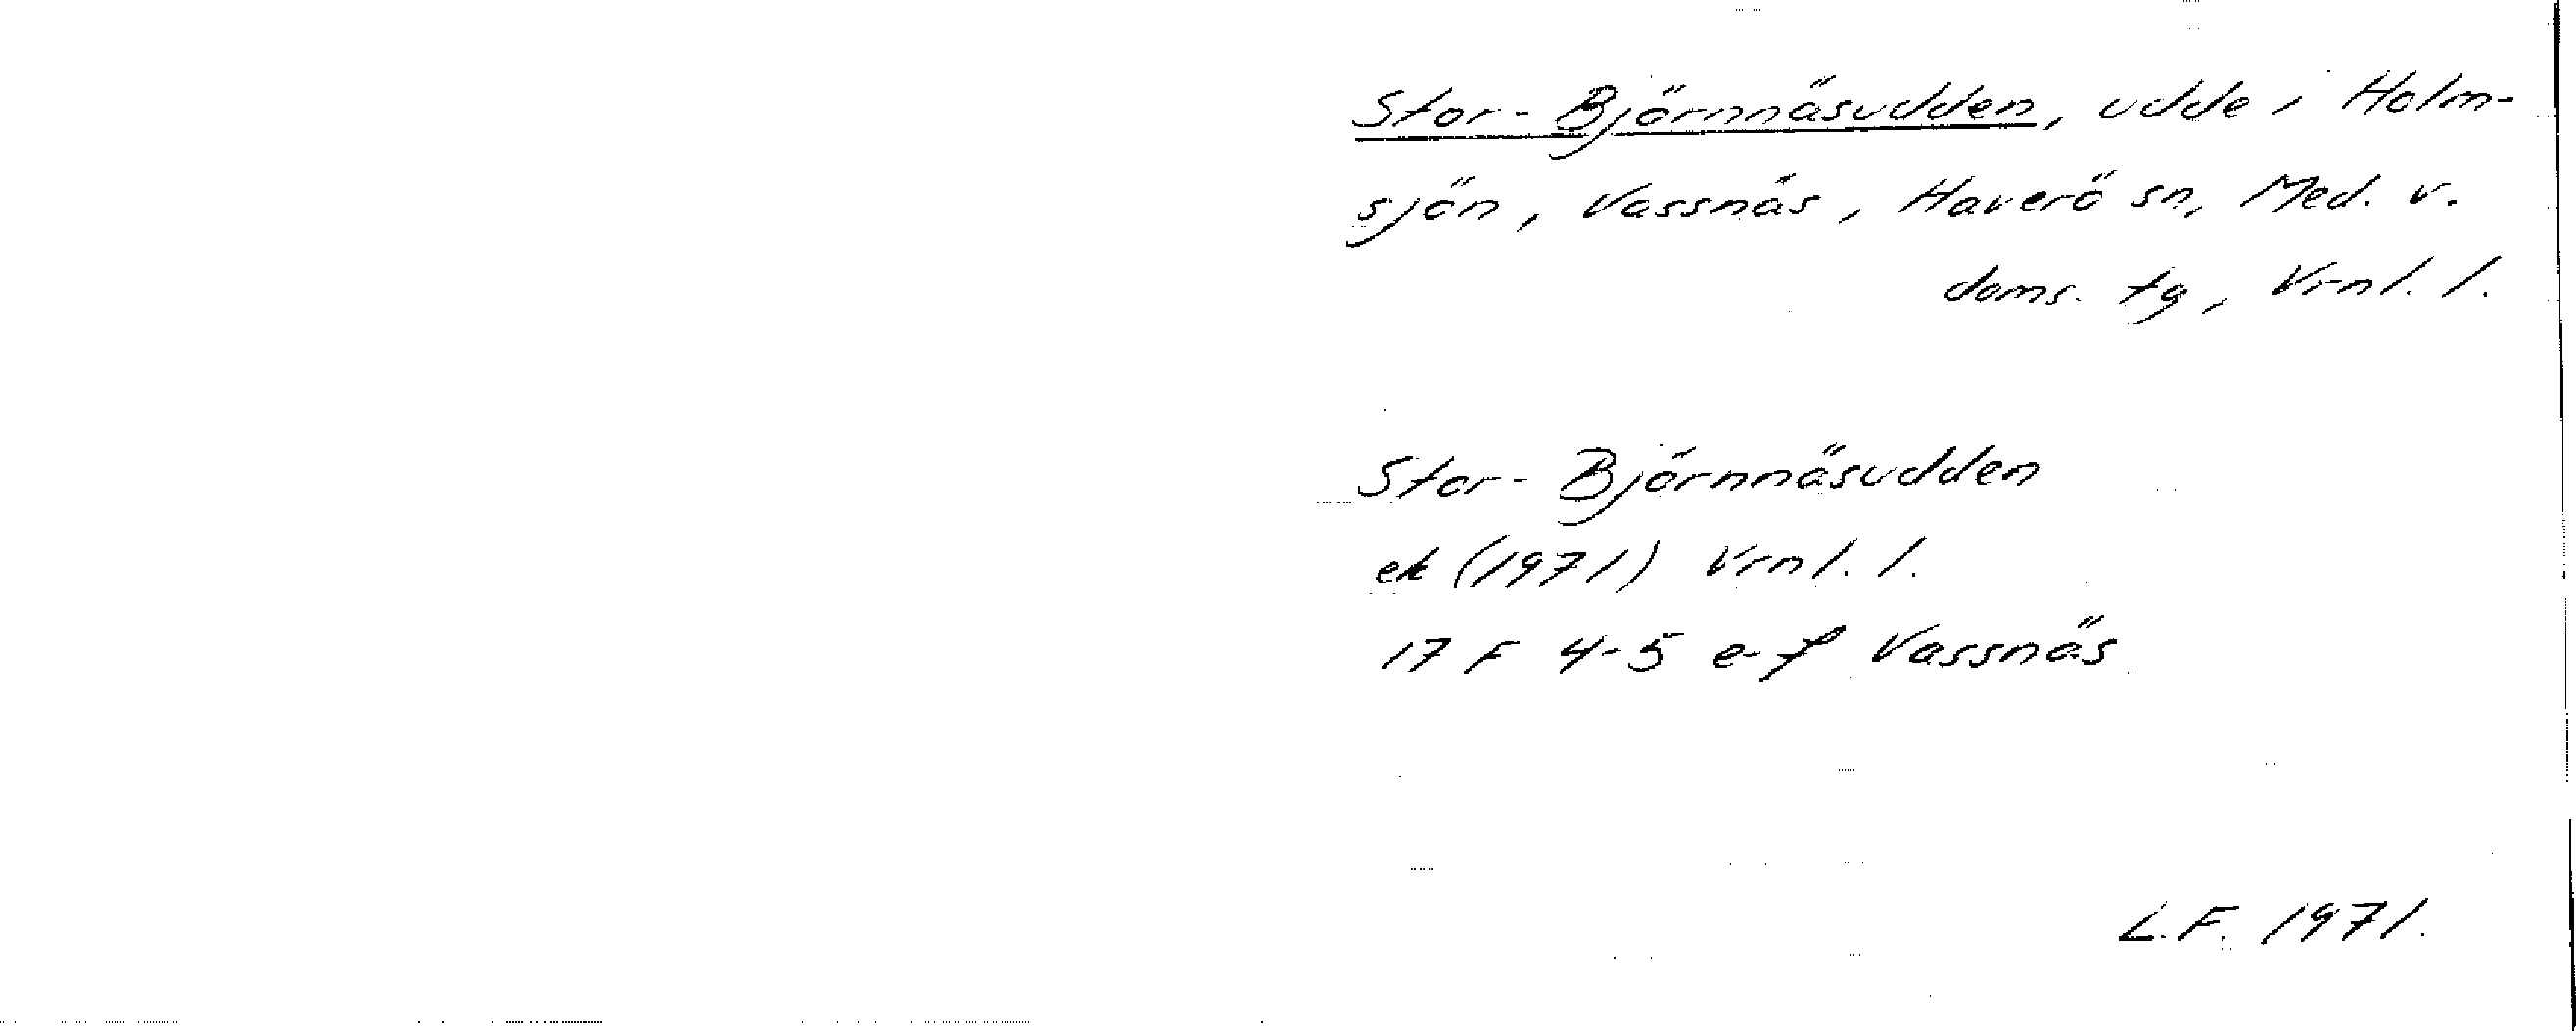 Stor-Björnnäsudden, udde i Holm-
sjön, Vassnäs, Haverö sn, Med. v.
doms. tg, Vrnl. l.
Stor-Björnnäsudden
ek (1971) Vrnl. l.
17 F 4-5 e-f Vassnäs
L.F. 1971.